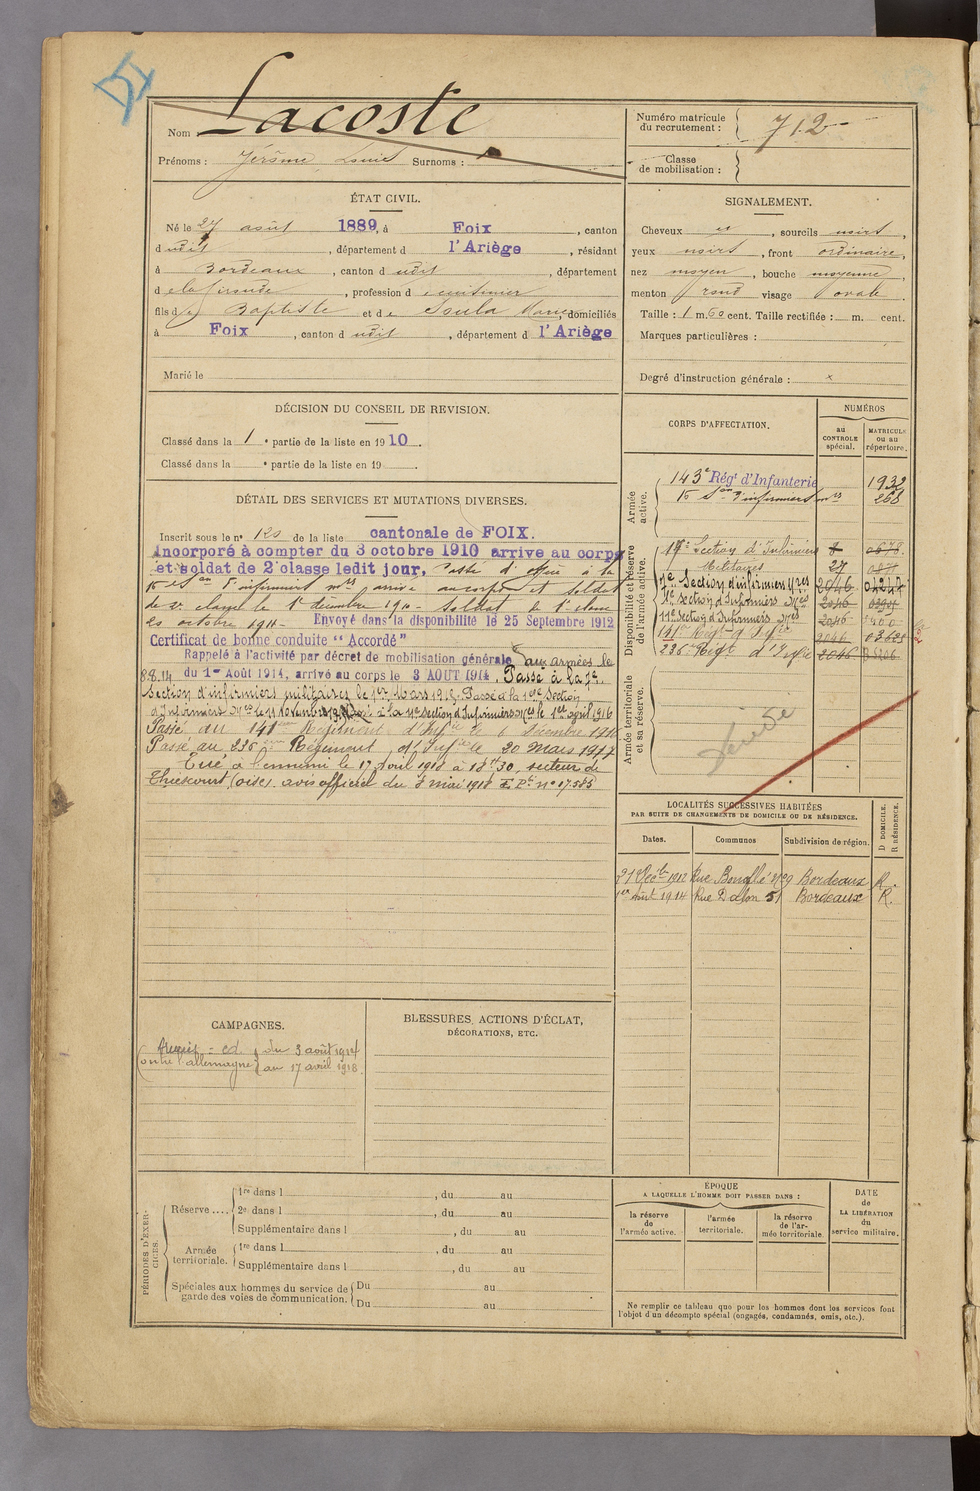 Nom : Lacoste
Prénoms : Jérôme Louis Surnoms :
Numéro matricule du recrutement : 712
Classe de mobilisation :
ÉTAT CIVIL.
Né le 27 août 1889, à Foix, canton
dudit, département d l'Ariège, résidant
à Bordeaux, canton dudit, département
de la Gironde, profession de cuisinier
fils de Baptiste et de Marie, domiciliés
à Foix, canton dudit, département d l'Ariège
Marié le
SIGNALEMENT.
Cheveux et, sourcils noirs,
yeux noirs, front ordinaire,
nez moyen, bouche moyenne,
menton rond visage ovale.
Taille : 1 m. 60 cent. Taille rectifiée : m. cent.
Marques particulières :
Degré d'instruction générale : x
DÉCISION DU CONSEIL DE REVISION.
Classé dans la 1 e partie de la liste en 1910.
Classé dans la e partie de la liste en 19 .
DÉTAIL DES SERVICES ET MUTATIONS DIVERSES.
Inscrit sous le n° de la liste cantonale de FOIX.
Incorporé à compter du 3 octobre 1910 arrive au corps
et soldat de 2e classe ledit jour. Passé d'office à la
arrivé au corps et soldat
de 2e classe le 1er décembre 1910. Soldat de 1e classe
octobre 1911. Envoyé dans la disponibilité le 25 Septembre 1912
Certificat de bonne conduite "Accordé"
Rappelé à l'activité par décret de mobilisation générale aux armées le
du 1er Août 1914, arrivé au corps le 3 AOUT 1914. 8.8.14 Passé à la 7e
Section d'infirmiers militaires le 1er Mars 1915. Passé à la Section
d'Infirmiers Mres le 11 novembre Passé à la 11e section d'Infirmiers Mres le 1er april 1916
Passé au 141e Régiment d'Infie le 6 Décembre 1916
Passé au 236e Régiment d'Infie le 20 Mars 1917
Tué à l'ennemi le 17 avril 1918 à 18h30, secteur de
Thiescourt (oise) avis officiel du 8 mai 1918 E.Pt. n° 17.585
CORPS D'AFFECTATION.
NUMÉROS
au CONTROLE spécial.
MATRICULE ou au répertoire.
Armée active.
143e Régt d'Infanterie 1932
d'infirmiers mres 268
Disponibilité et réserve de l'armée active.
Section d'Infirmiers 8
Militaires 27
7e Section d'infirmiers Mres 2046
Section d'Infirmiers Mres 2046
11e Section d'Infirmiers Mres 2046
141e Regt d'Infie 2046
236e Regt d'Infie 2046
Armée territoriale et sa réserve.
LOCALITÉS SUCCESSIVES HABITÉES
PAR SUITE DE CHANGEMENTS DE DOMICILE OU DE RÉSIDENCE.
Dates. Communes Subdivision de région. D DOMICILE. R RÉSIDENCE.
21 Décbre 1912 Rue Bordeaux R.
1er Août 1914 Rue Dalon 51 Bordeaux R.
CAMPAGNES.
contre l'allemagne du 3 août 1914
au 17 avril 1918.
BLESSURES, ACTIONS D'ÉCLAT,
DÉCORATIONS, ETC.
PÉRIODES D'EXERCICES.
Réserve....
1re dans l , du au
2e dans l , du au
Supplémentaire dans l , du au
Armée territoriale.
1re dans l , du au
Supplémentaire dans l , du au
Spéciales aux hommes du service de garde des voies de communication.
Du au
Du au
ÉPOQUE
A LAQUELLE L'HOMME DOIT PASSER DANS :
la réserve de l'armée active.
l'armée territoriale.
la réserve de l'armée territoriale.
DATE de LA LIBÉRATION du service militaire.
Ne remplir ce tableau que pour les hommes dont les services font
l'objet d'un décompte spécial (engagés, condamnés, omis, etc.).